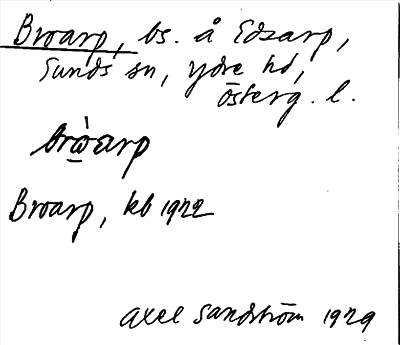 Broarp, bs. å Edsarp,
Sunds sn, Ydre hd,
Österg. l.
brὼ̲arp
Broarp, kb 1922
Axel Sandström 1929